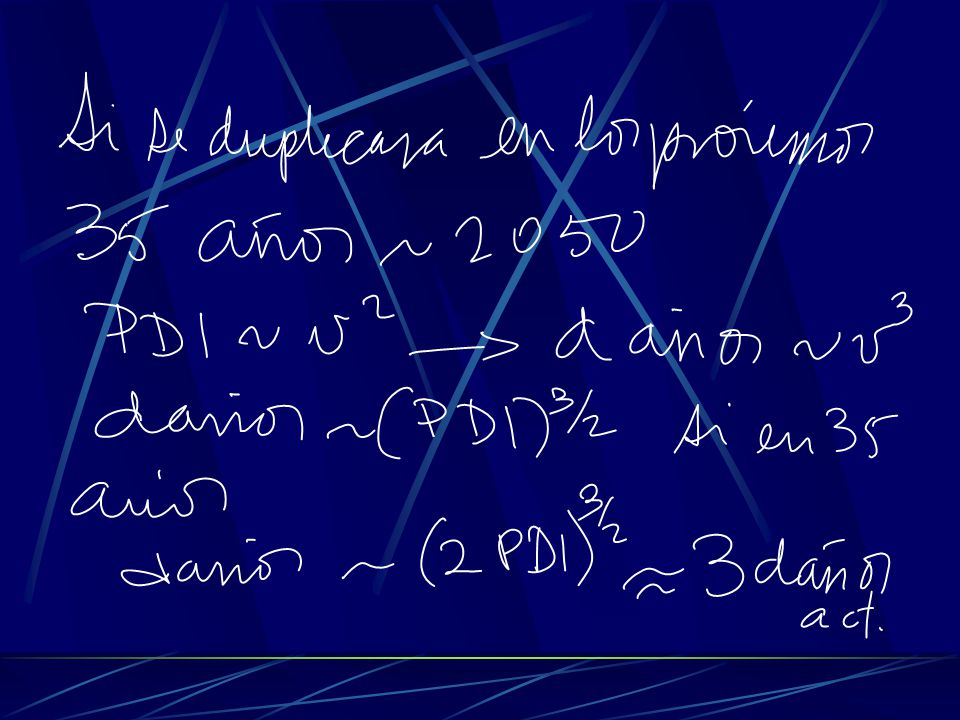 Si se duplicara en los próximos
35 años ~ 2050
PDI ~ v² → daños ~ v³
daños ~ (PDI)^3/2 si en 35
años
daños ~ (2 PDI)^3/2 ≈ 3 daños
act.